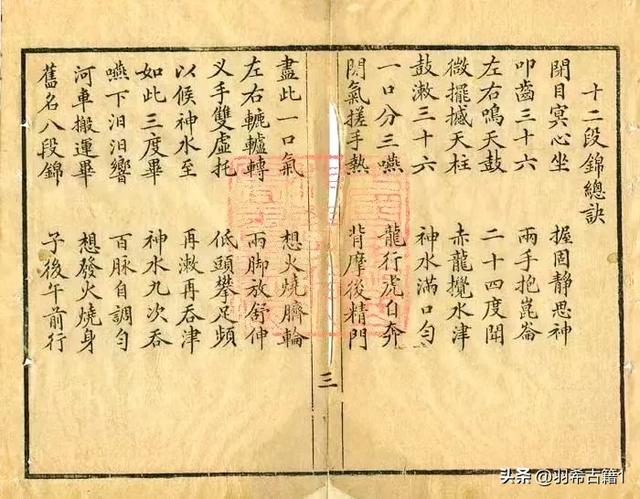 十二段錦總訣
閉目冥心坐 握固靜思神
叩齒三十六 兩手抱崑崙
左右鳴天鼓 二十四度聞
微擺撼天柱 赤龍攪水津
鼓漱三十六 神水滿口勻
一口分三嚥 龍行虎自奔
閉氣搓手熱 背摩後精門
三
盡此一口氣 想火燒臍輪
左右轆轤轉 兩脚放舒伸
叉手雙虛托 低頭攀足頻
以候神水至 再漱再吞津
如此三度畢 神水九次吞
嚥下汩汩響 百脉自調勻
河車搬運畢 想發火燒身
舊名八段錦 子後午前行
头条 @羽希古籍1